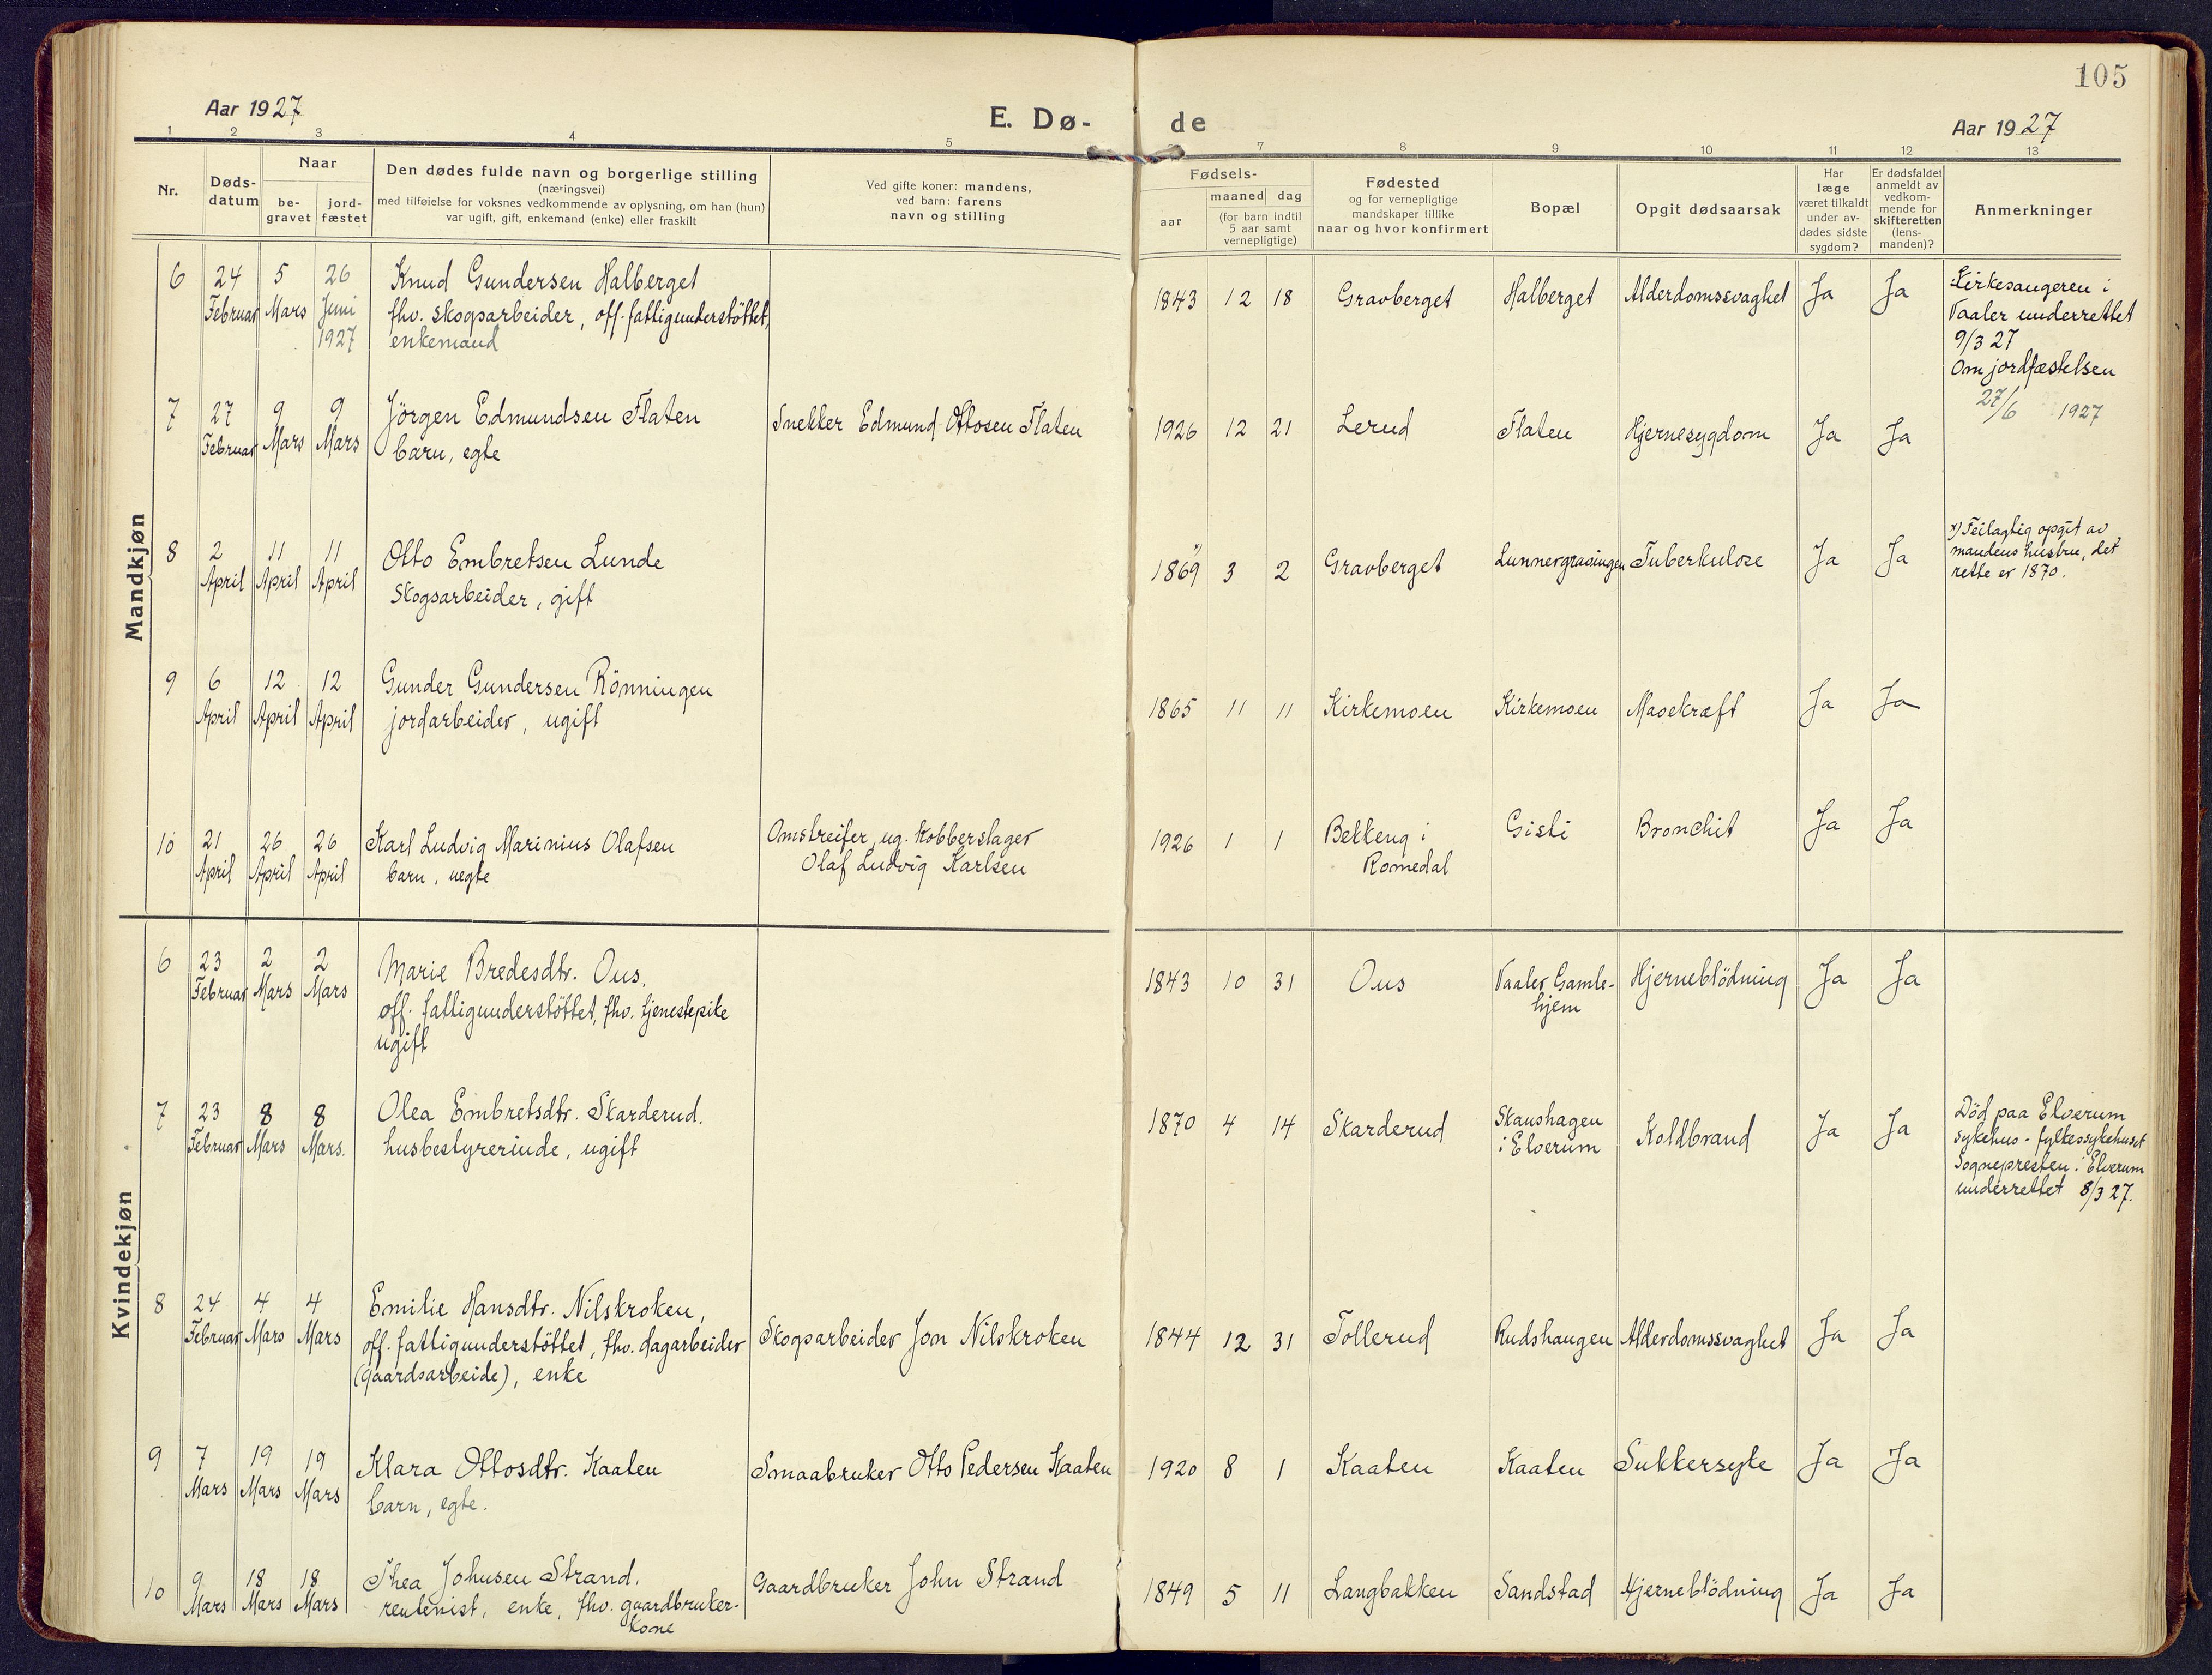 105
Aar 1927
E. Dø-
de
Aar 1927
1 2 3 4 5 7 8 9 10 11 12 13
Nr.
Døds-
datum
Naar
be-
gravet
jord-
fæstet
Den dødes fulde navn og borgerlige stilling
(næringsvei)
med tilføielse for voksnes vedkommende av oplysning, om han (hun)
var ugift, gift, enkemand (enke) eller fraskilt
Ved gifte koner: mandens,
ved barn: farens
navn og stilling
Fødsels-
aar
maaned dag
(for barn indtil
5 aar samt
vernepligtige)
Fødested
og for vernepligtige
mandskaper tillike
naar og hvor konfirmert
Bopæl
Opgit dødsaarsak
Har
læge
været tilkaldt
under av-
dødes sidste
sygdom?
Er dødsfaldet
anmeldt av
vedkom-
mende for
skifteretten
(lens-
manden)?
Anmerkninger
Mandkjøn
6 24 5 26 Knud Gundersen Halberget
Februar Mars Juni fhv. skogsarbeider, off. fattigunderstöttet,
1927 enkemand
1843 12 18 Gravberget Halberget Alderdomssvaghet Ja Ja
Kirkesangeren i
Vaaler underrettet
9/3 27
Om jordfæstelsen
27/6 1927
7 27 9 9 Jörgen Edmundsen Flaten Snekker Edmund Ottosen Flaten
Februar Mars Mars barn, egte
1926 12 21 Lerud Flaten Hjernesygdom Ja Ja
8 2 11 11 Otto Embretsen Lunde
April April April Skogsarbeider, gift
1869 x) 3 2 Gravberget Lunnergravingen Tuberkulose Ja Ja
x) Feilagtig opgit av
mandens hustru, det
rette er 1870.
9 6 12 12 Gunder Gundersen Rönningen
April April April jordarbeider, ugift
1865 11 11 Kirkemoen Kirkemoen Mavekræft Ja Ja
10 21 26 26 Karl Ludvig Marinius Olafsen Omstreifer, ug. Kobberslager
April April April barn, uegte Olaf Ludvig Karlsen
1926 1 1 Bekkeng i Gisti Bronchit Ja Ja
Romedal
Kvindekjøn
6 23 2 2 Marie Bredesdtr. Ous,
Februar Mars Mars off. fattigunderstöttet, fhv. tjenestepike
ugift
1843 10 31 Ous Vaaler Gamle- Hjerneblödning Ja Ja
hjem
7 23 8 8 Olea Embretsdtr. Skarderud.
Februar Mars Mars. husbestyrerinde, ugift
1870 4 14 Skarderud Skaushagen Koldbrand Ja Ja
i Elverum
Död paa Elverum
sykehus - fylkessykehuset
Sognepresten i Elverum
underrettet 8/3 27.
8 24 4 4 Emilie Hansdtr. Nilskroken,
Februar Mars Mars off. fattigunderstöttet, fhv. dagarbeider Skogsarbeider Jon Nilskroken
(gaardsarbeide), enke
1844 12 31 Tollerud Rudshaugen Alderdomssvaghet Ja Ja
9 7 19 19 Klara Ottosdtr. Kaaten Smaabruker Otto Pedersen Kaaten
Mars Mars Mars barn, egte.
1920 8 1 Kaaten Kaaten Sukkersyke Ja Ja
10 9 18 18 Thea Johnsen Strand, Gaardbruker John Strand
Mars Mars Mars rentenist, enke, fhv. gaardbruker-
kone
1849 5 11 Langbakken Sandstad Hjerneblödning Ja Ja